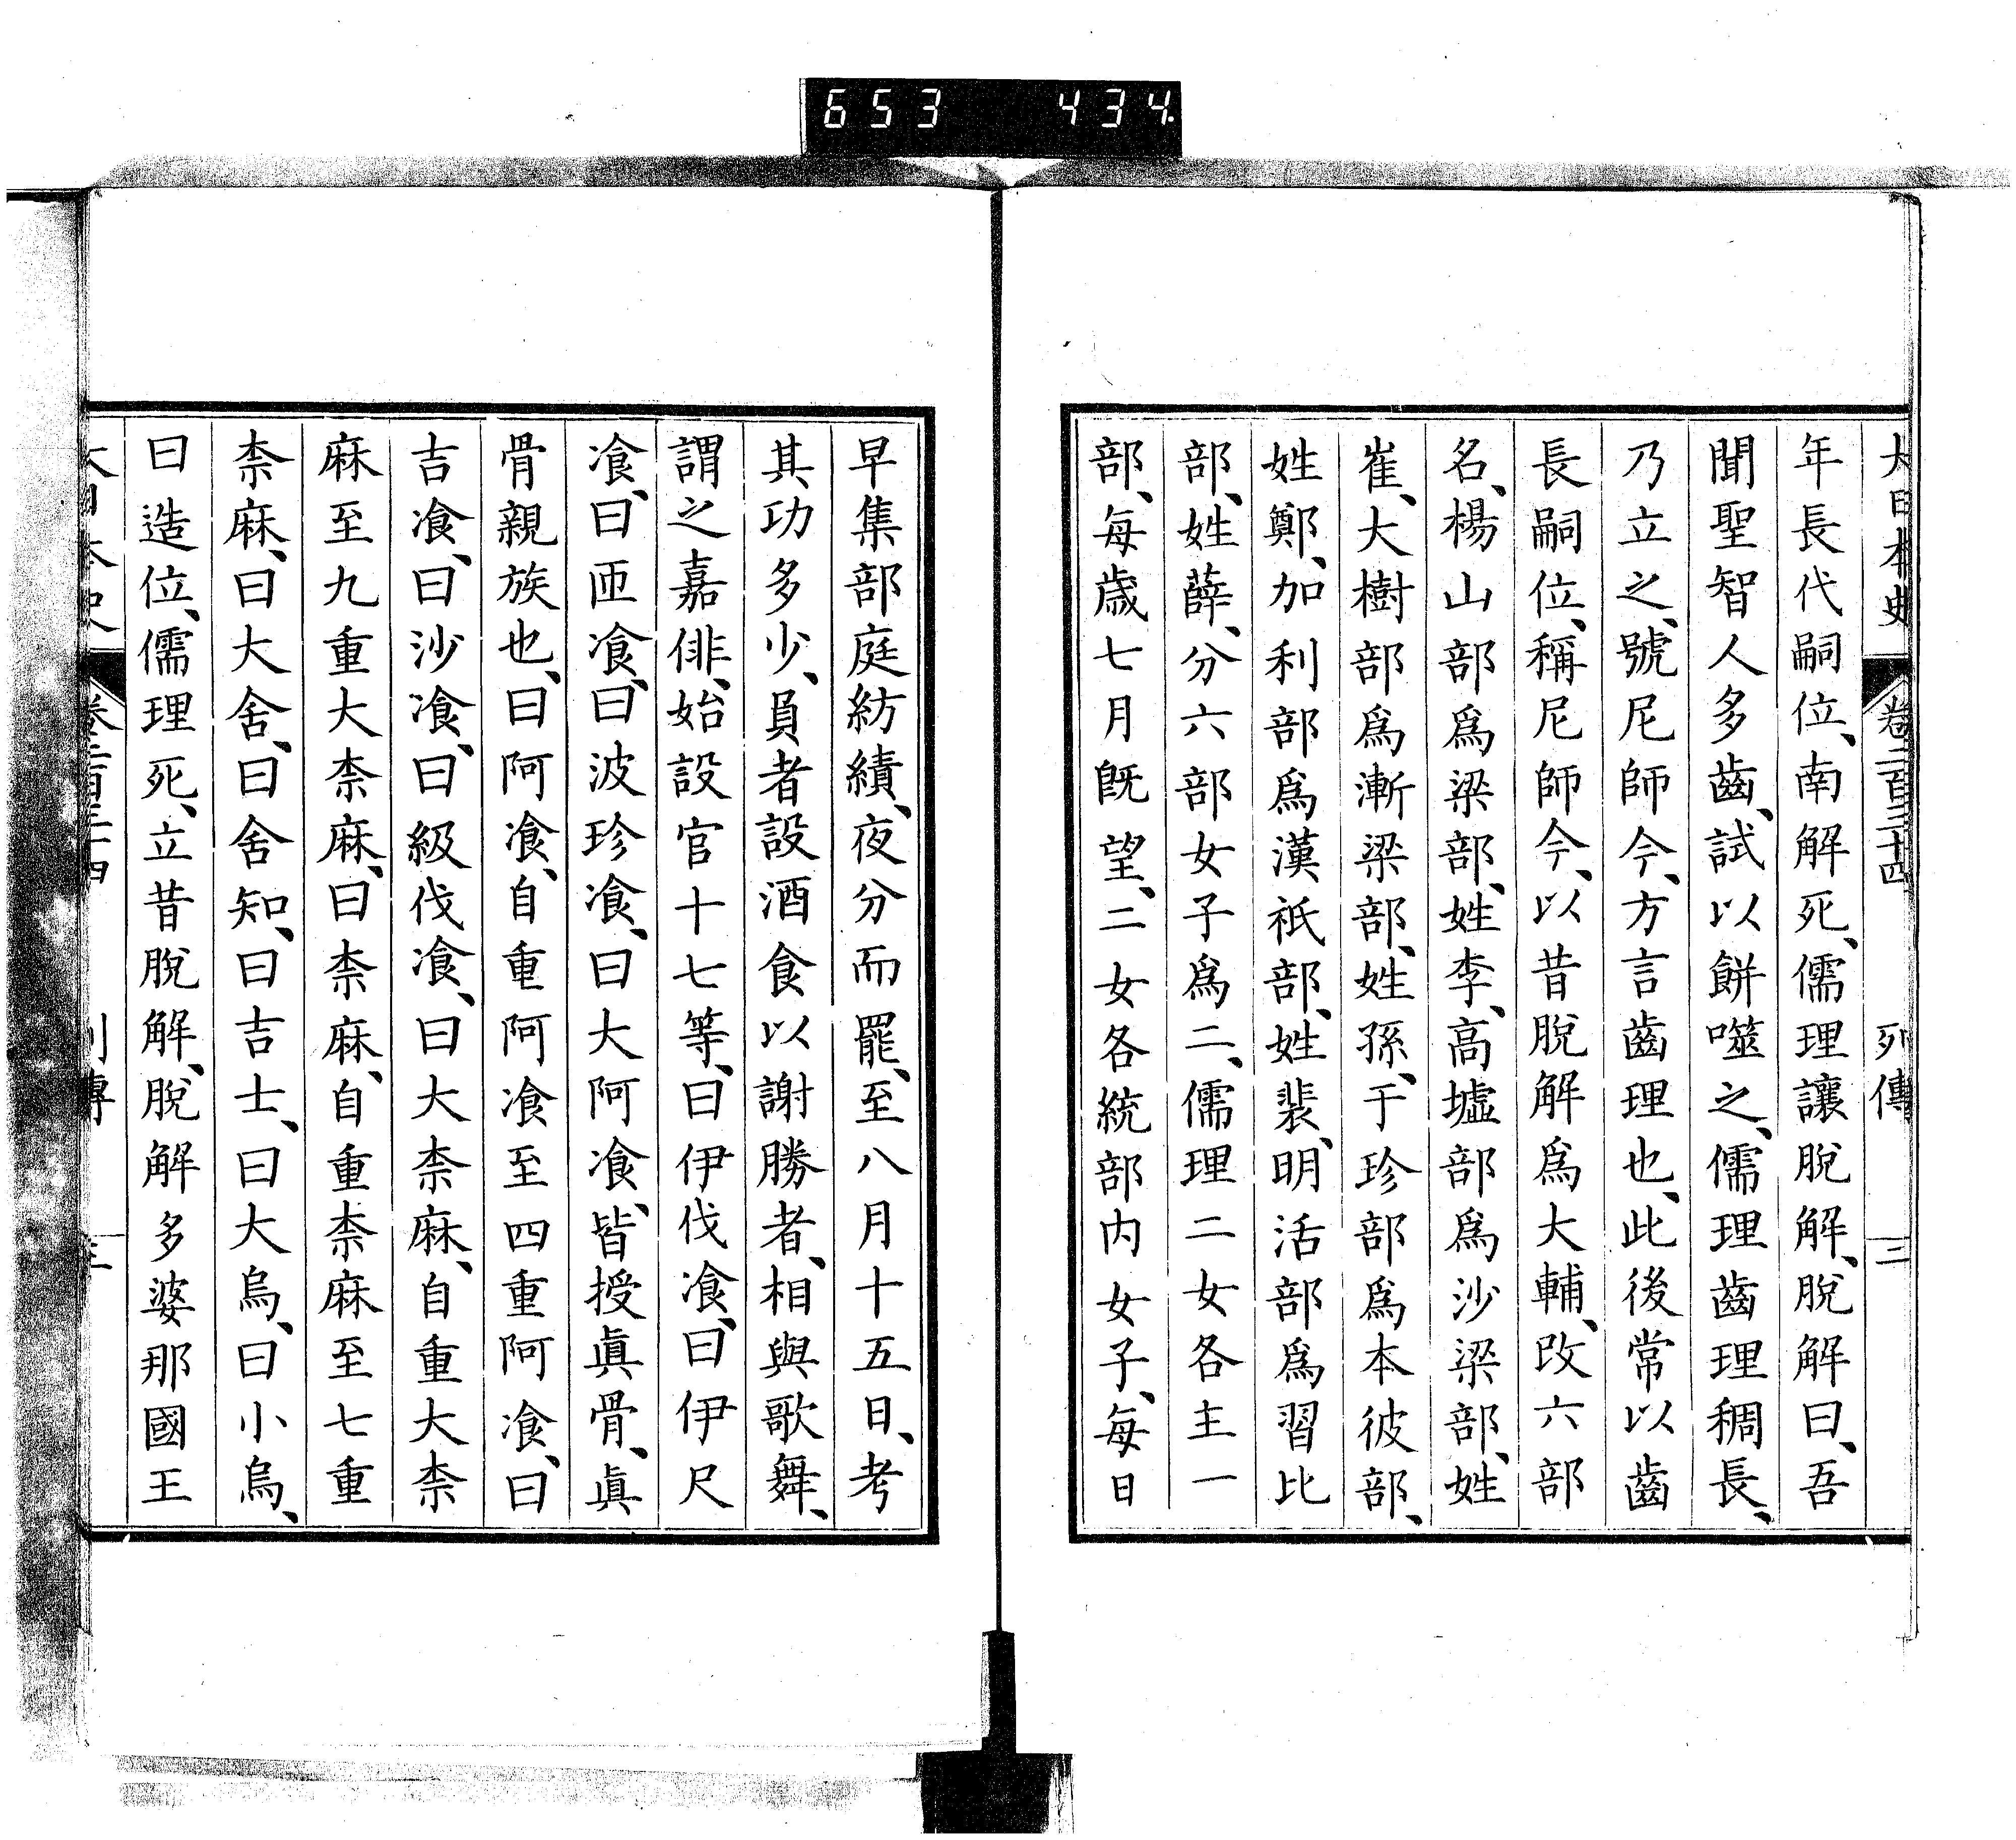 653 434.
大日本史 卷二百三十四 列傳 三
年長代嗣位、南解死、儒理讓脫解、脫解曰、吾
聞聖智人多齒、試以餅噬之、儒理齒理稠長、
乃立之、號尼師今、方言齒理也、此後常以齒
長嗣位、稱尼師今、以昔脫解爲大輔、改六部
名、楊山部爲梁部、姓李、高墟部爲沙梁部、姓
崔、大樹部爲漸梁部、姓孫、于珍部爲本彼部、
姓鄭、加利部爲漢祇部、姓裴、明活部爲習比
部、姓薛、分六部女子爲二、儒理二女各主一
部、每歲七月旣望、二女各統部內女子、每日
早集部庭紡績、夜分而罷、至八月十五日、考
其功多少、負者設酒食以謝勝者、相與歌舞、
謂之嘉俳、始設官十七等、曰伊伐飡、曰伊尺
飡、曰匝飡、曰波珍飡、曰大阿飡、皆授眞骨、眞
骨親族也、曰阿飡、自重阿飡至四重阿飡、曰
吉飡、曰沙飡、曰級伐飡、曰大柰麻、自重大柰
麻至九重大柰麻、曰柰麻、自重柰麻至七重
柰麻、曰大舍、曰舍知、曰吉士、曰大烏、曰小烏、
曰造位、儒理死、立昔脫解、脫解多婆那國王
大日本史 卷二百三十四 列傳 三